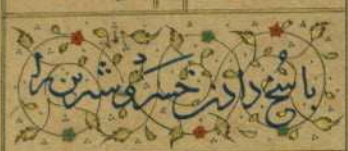 پاسُخ دادن خسرو شیرین را